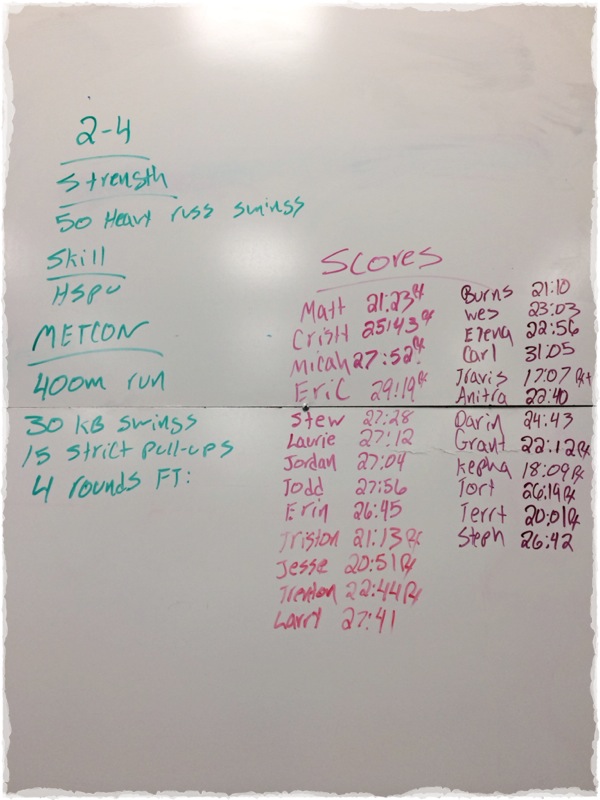 2-4
Strength
50 Heavy russ swings
Skill
HSPU
METCON
400m run
30 KB swings
15 strict pull-ups
4 rounds FT:
Scores
Matt 21:23 Rx
CrisH 25:43 Rx
Micah 27:52 Rx
Eric 29:19 Rx
Stew 27:28
Laurie 27:12
Jordan 27:04
Todd 27:56
Erin 26:45
Triston 21:13 Rx
Jesse 20:51 Rx
Trenton 22:44 Rx
Larry 27:41
Burns 21:10
Wes 23:03
Elena 22:56
Carl 31:05
Travis 17:07 Rx+
Anitra 22:40
Darin 24:43
Grant 22:12 Rx
18:09 Rx
Tort 26:19 Rx
Terrt 20:01 Rx
Steph 26:42